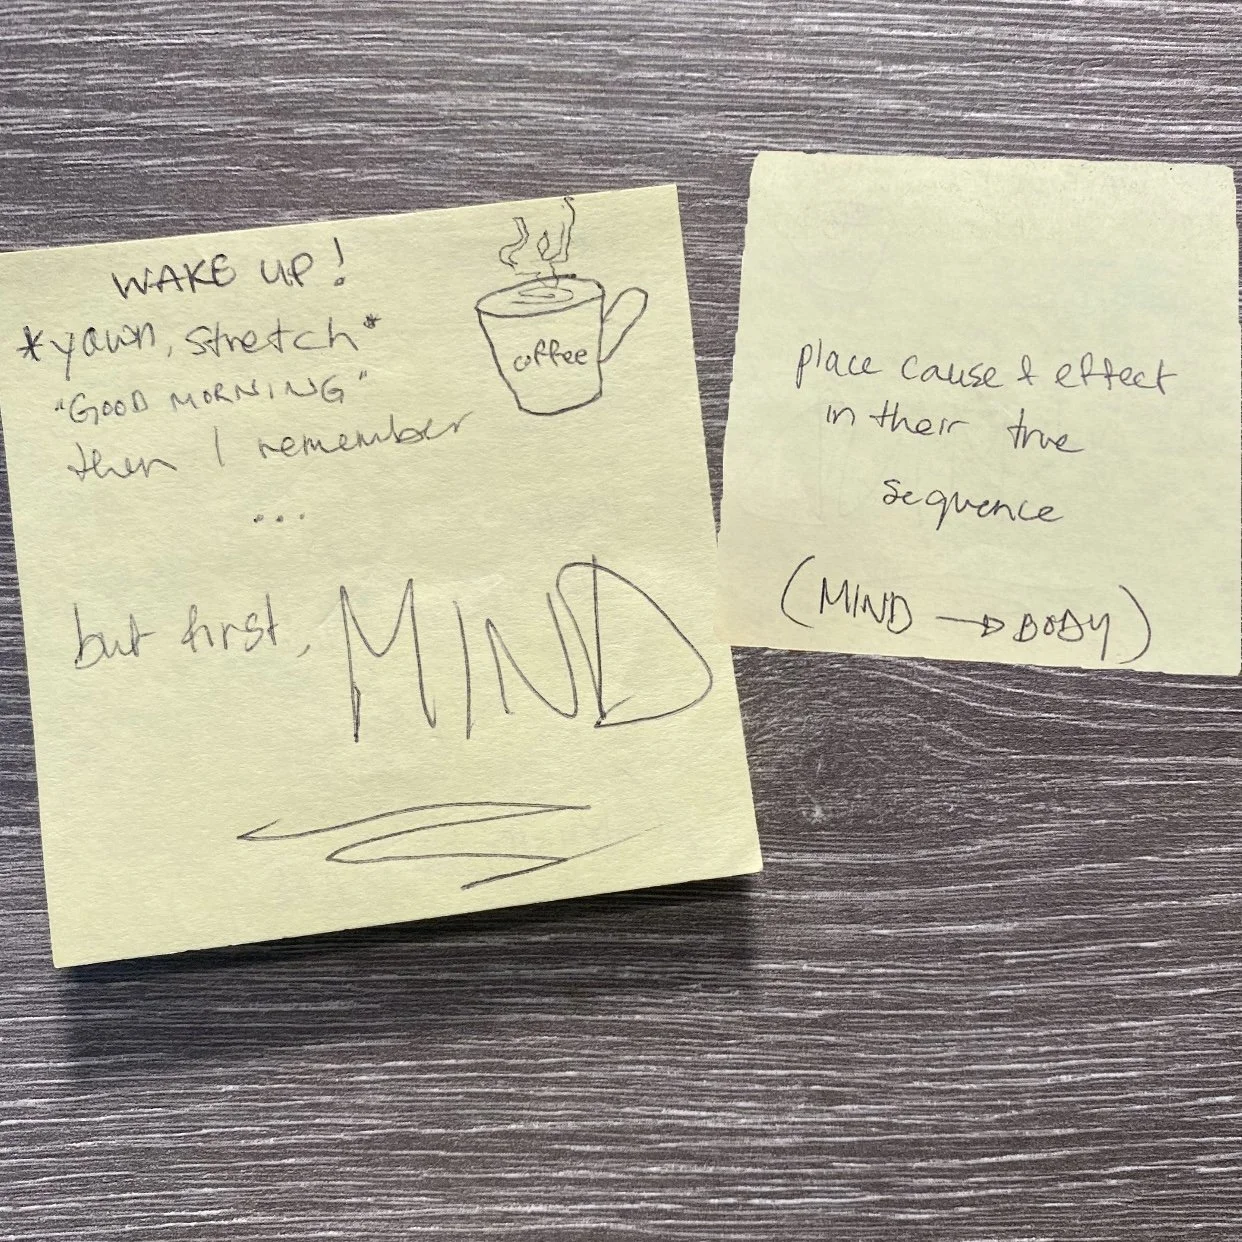 WAKE UP!
*yawn, stretch*
"GOOD MORNING"
then I remember
...
but first, MIND
coffee
place cause & effect
in their true
sequence
(MIND → BODY)